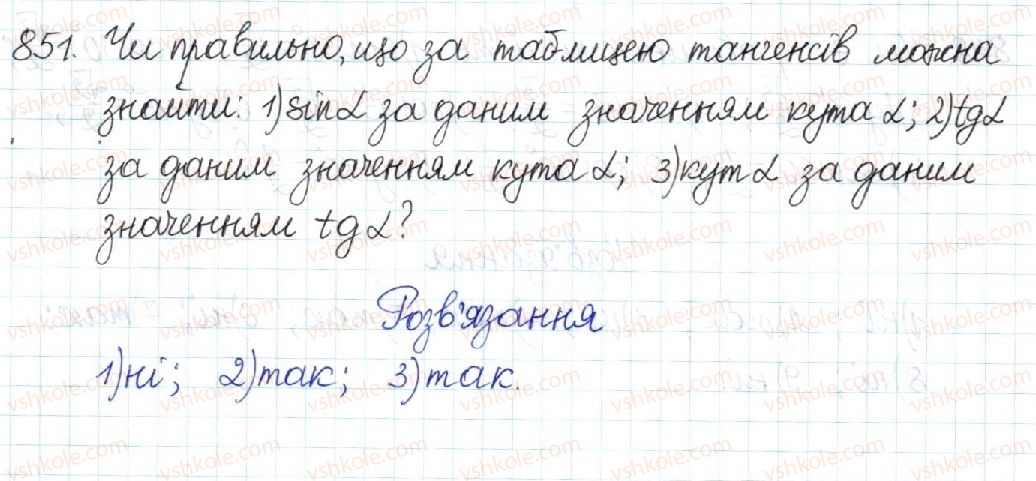 851. Чи правильно, що за таблицею тангенсів можна
знайти: 1) sin α за даним значенням кута α; 2) tg α
за даним значенням кута α; 3) кут α за даним
значенням tg α?
Розв'язання
1) ні; 2) так; 3) так.